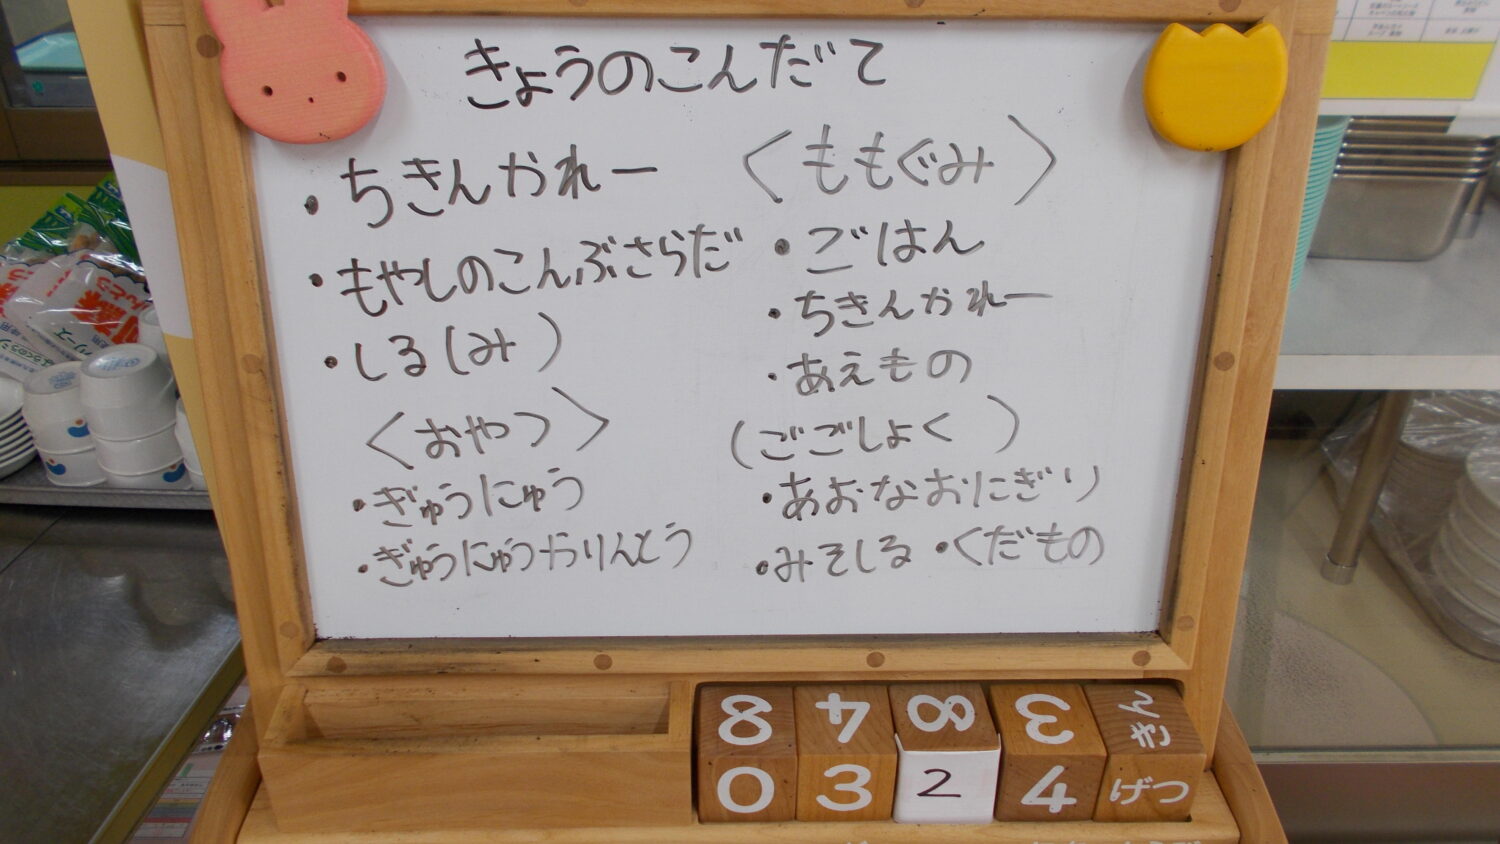 きょうのこんだて
・ちきんかれー
・もやしのこんぶさらだ
・しる(み)
<おやつ>
・ぎゅうにゅう
・ぎゅうにゅうかりんとう
<ももぐみ>
・ごはん
・ちきんかれー
・あえもの
(ごごしょく)
・あおなおにぎり
・みそしる・くだもの
8 4 8 3 きん
0 3 2 4 げつ